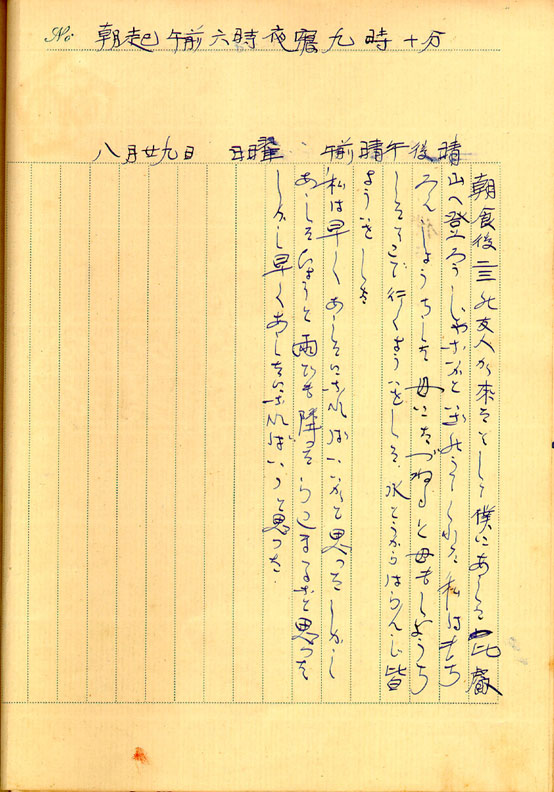 No.
朝起午前六時夜寝九時十分
八月廿九日 日曜 午前晴午後晴
朝食後二三の友人が来たそして僕にあした比叡
山へ登ろうじゃないかといのうてくれた私はもち
ろんしょうちした母にたづねると母もしょうち
してそこで行くようゐをした水とうからはらんじ皆
ようゐをした
私は早くあしたになればいいがと思ったしかし
あしたひょっと雨でも降ったらこまるなと思った
しかし早くあしたになればいゝと思った